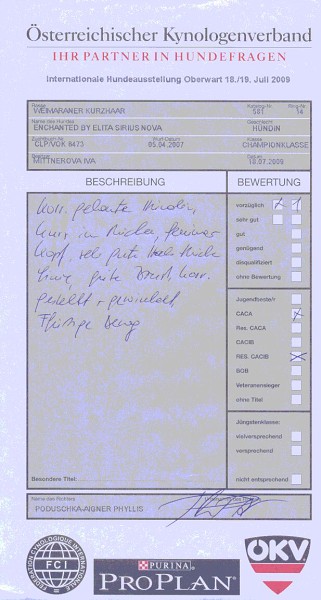 Österreichischer Kynologenverband
IHR PARTNER IN HUNDEFRAGEN
Internationale Hundeausstellung Oberwart 18./19. Juli 2009
Rasse Katalog-Nr. Ring-Nr.
WEIMARANER KURZHAAR 581 14
Name des Hundes Geschlecht
ENCHANTED BY ELITA SIRIUS NOVA HÜNDIN
Zuchtbuch-Nr. Wurf-Datum Klasse
CLP/VOK 6473 05.04.2007 CHAMPIONKLASSE
Besitzer Datum
WITTNEROVA IVA 18.07.2009
BESCHREIBUNG BEWERTUNG
vorzüglich x 1
sehr gut
gut
genügend
disqualifiziert
ohne Bewertung
Korr. gebaute Hündin,
kurz im Rücken, femininer
Kopf, sehr gute
gute Brust, korr.
gestellt + gewinkelt
Flüssige Bewg
Jugendbeste/r
CACA x
Res. CACA
CACIB
RES. CACIB x
BOB
Veteranensieger
ohne Titel
Jüngstenklasse:
vielversprechend
versprechend
nicht entsprechend
Besondere Titel:
Name des Richters
PODUSCHKA-AIGNER PHYLLIS
FEDERATION CYNOLOGIQUE INTERNATIONALE
FCI
PURINA
PRO PLAN
ÖKV